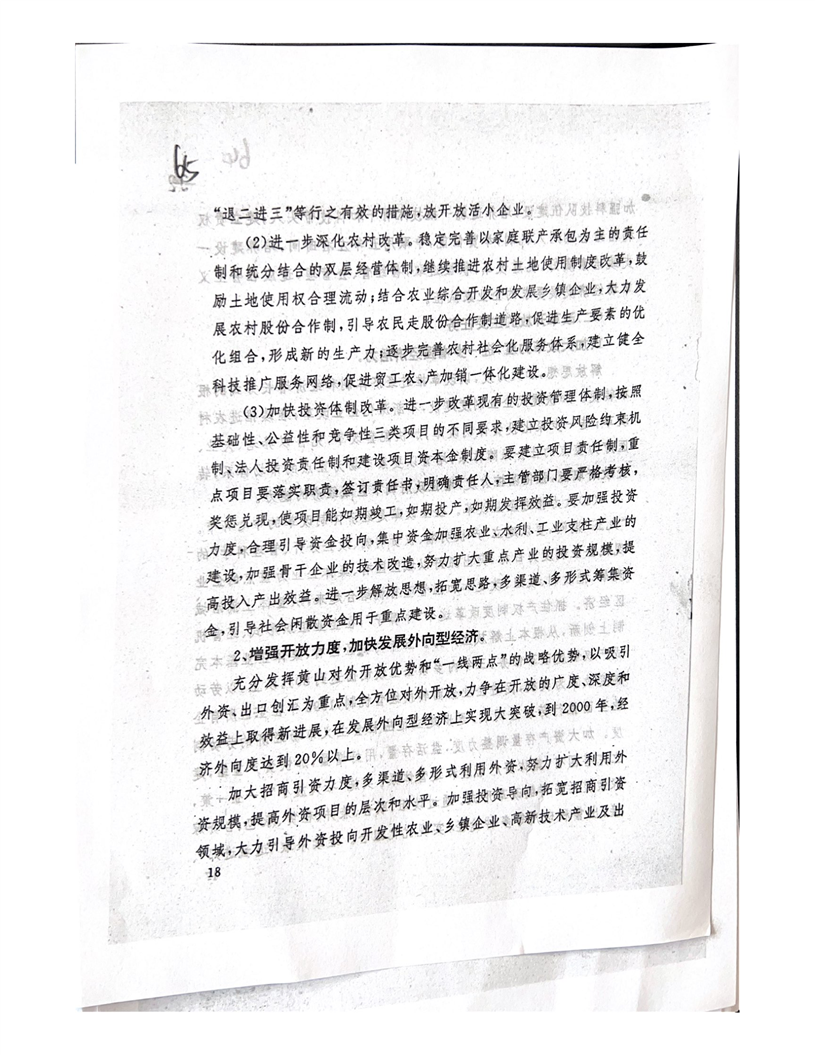 65
“退二进三”等行之有效的措施,放开放活小企业。
(2)进一步深化农村改革。稳定完善以家庭联产承包为主的责任
制和统分结合的双层经营体制,继续推进农村土地使用制度改革,鼓
励土地使用权合理流动;结合农业综合开发和发展乡镇企业,大力发
展农村股份合作制,引导农民走股份合作制道路,促进生产要素的优
化组合,形成新的生产力;逐步完善农村社会化服务体系,建立健全
科技推广服务网络,促进贸工农、产加销一体化建设。
(3)加快投资体制改革。进一步改革现有的投资管理体制,按照
基础性、公益性和竞争性三类项目的不同要求,建立投资风险约束机
制、法人投资责任制和建设项目资本金制度。要建立项目责任制,重
点项目要落实职责,签订责任书,明确责任人,主管部门要严格考核,
奖惩兑现,使项目能如期竣工,如期投产,如期发挥效益。要加强投资
力度,合理引导资金投向,集中资金加强农业、水利、工业支柱产业的
建设,加强骨干企业的技术改造,努力扩大重点产业的投资规模,提
高投入产出效益。进一步解放思想,拓宽思路,多渠道、多形式筹集资
金,引导社会闲散资金用于重点建设。
2、增强开放力度,加快发展外向型经济。
充分发挥黄山对外开放优势和“一线两点”的战略优势,以吸引
外资、出口创汇为重点,全方位对外开放,力争在开放的广度、深度和
效益上取得新进展,在发展外向型经济上实现大突破,到2000年,经
济外向度达到20%以上。
加大招商引资力度,多渠道、多形式利用外资,努力扩大利用外
资规模,提高外资项目的层次和水平。加强投资导向,拓宽招商引资
领域,大力引导外资投向开发性农业、乡镇企业、高新技术产业及出
18